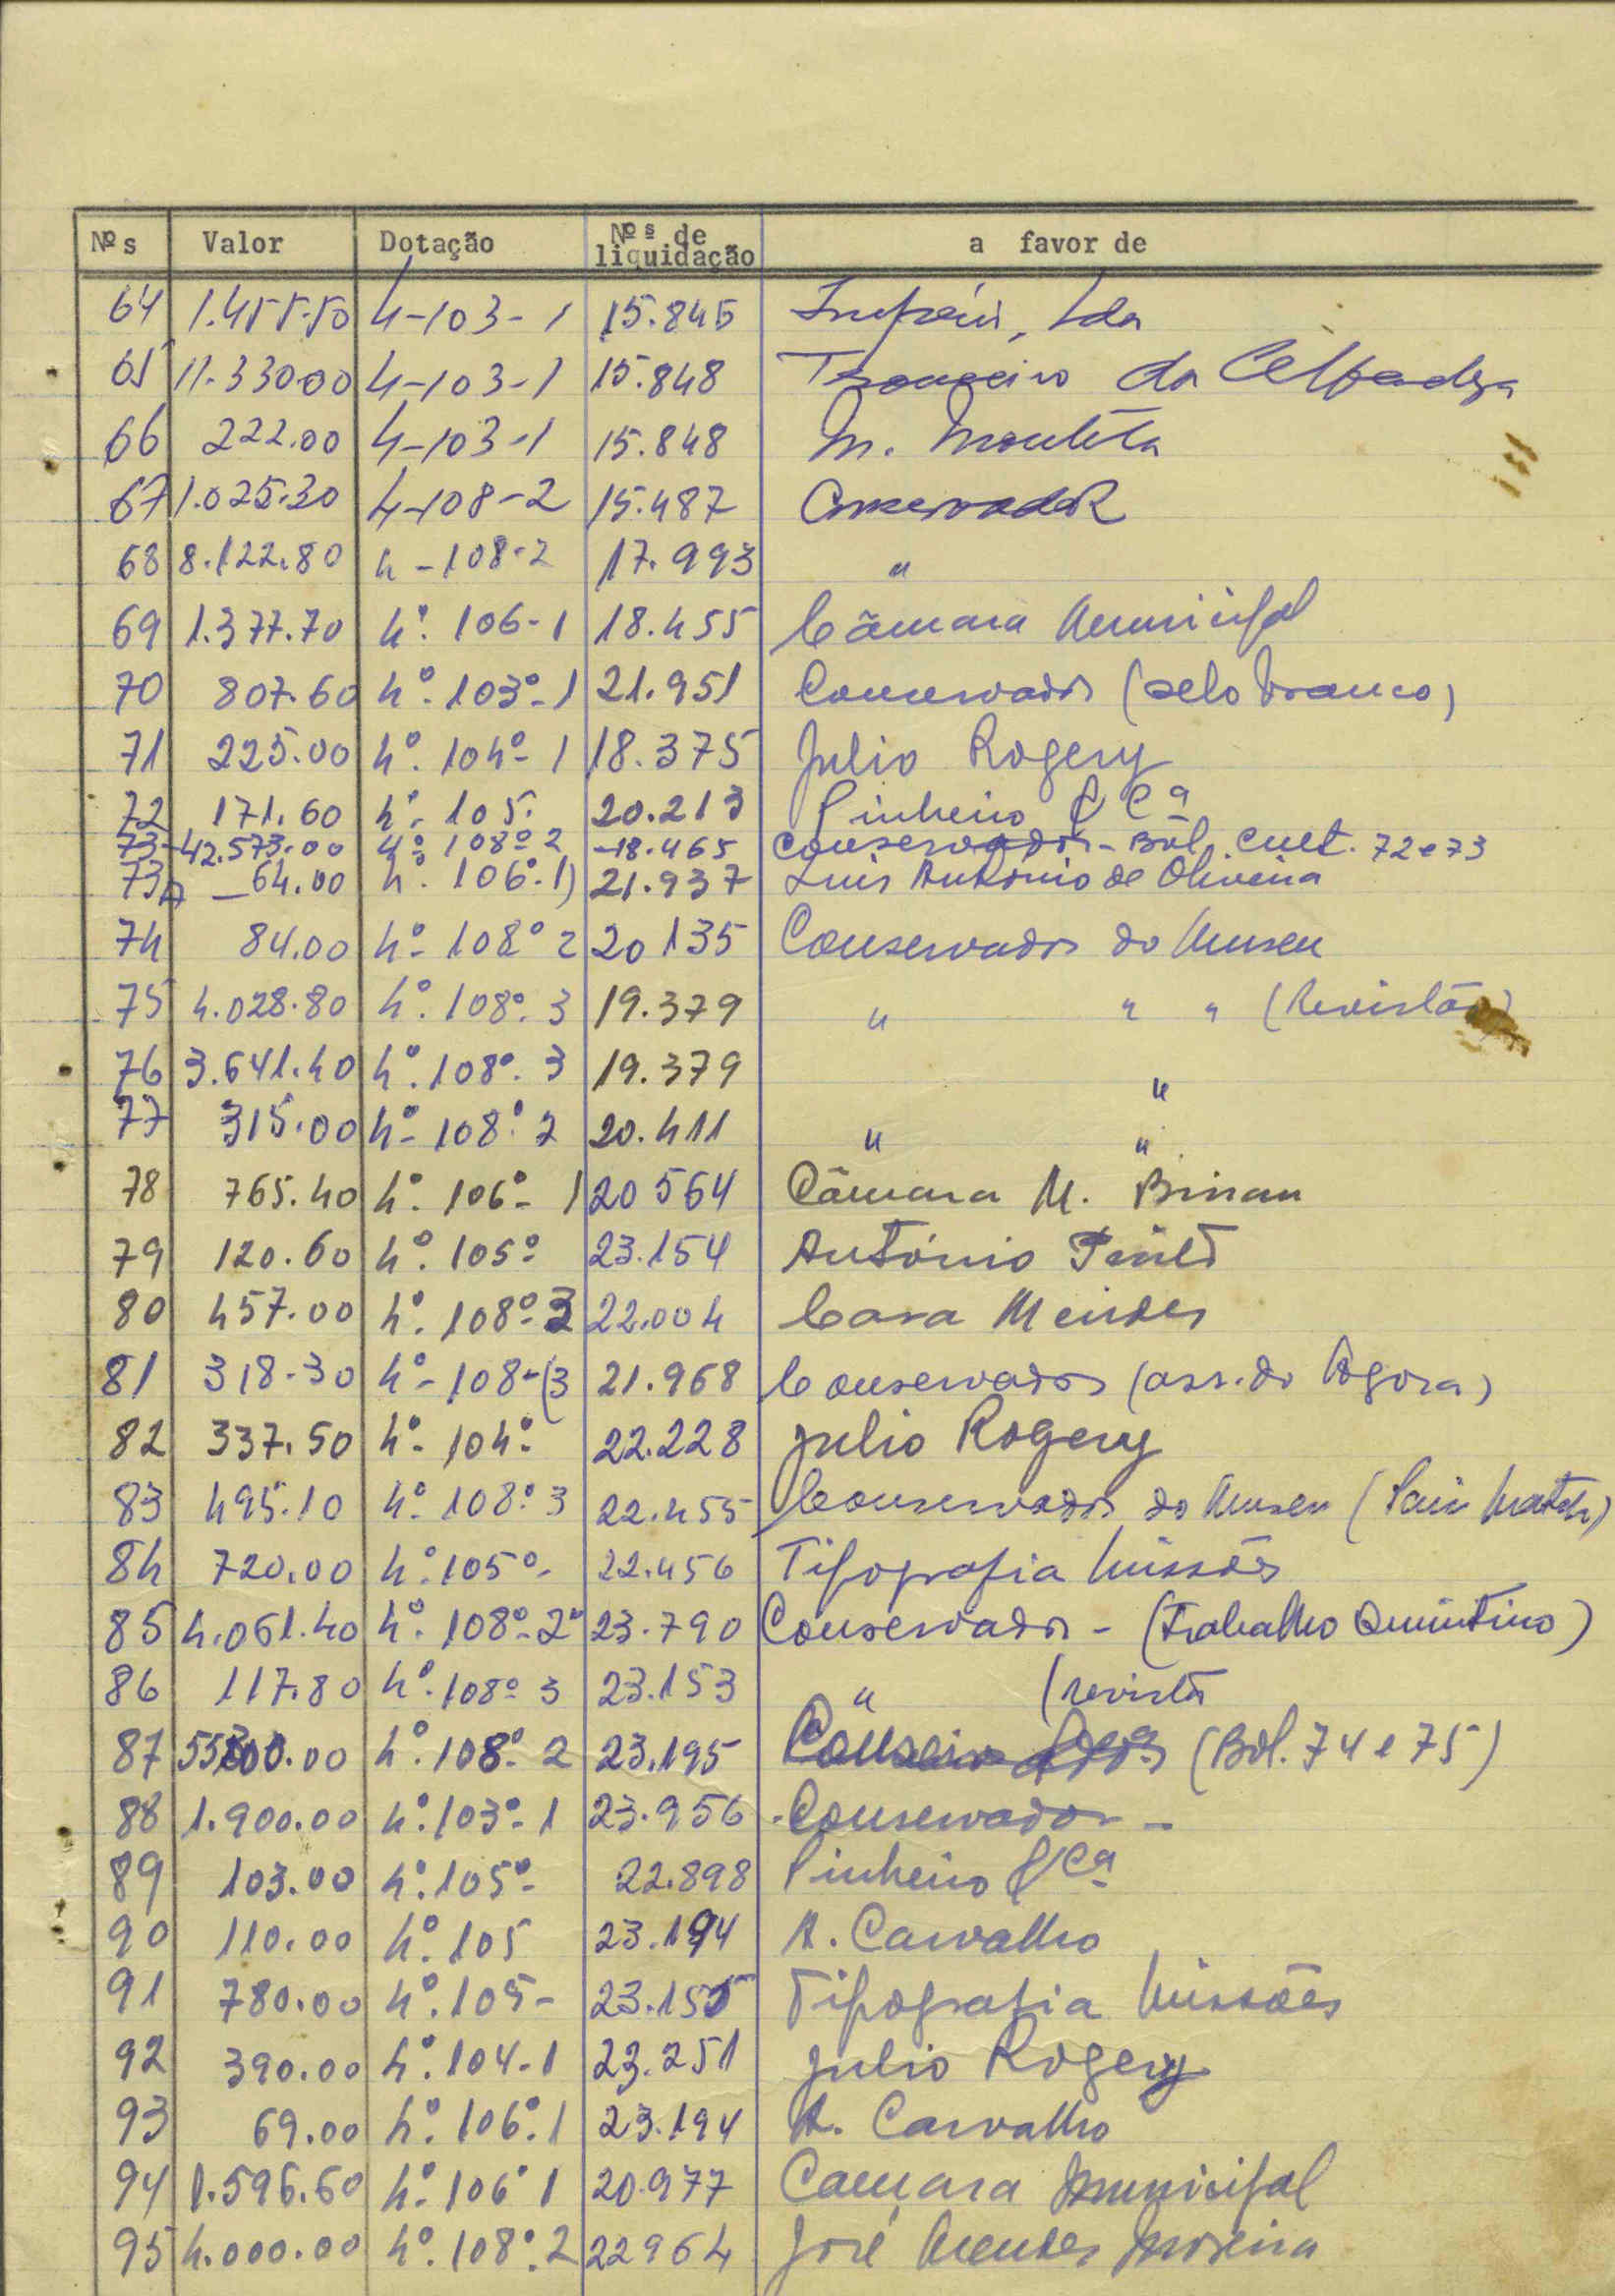 Nºs Valor Dotação Nºs de liquidação a favor de
64 1.455.50 4-103-1 15.845 Lda
65 11.330.00 4-103-1 15.848 da
66 222.00 4-103-1 15.848 M.
67 1.025.30 4-108-2 15.487 Conservador
68 8.122.80 4-108-2 17.993 "
69 1.377.70 4º. 106-1 18.455 Câmara Municipal
70 807.60 4º. 103º-1 21.951 Conservador (selo branco)
71 225.00 4º. 104º-1 18.375 Julio Rogery
72 171.60 4º. 105. 20.213 Pinheiro & Cª
73-42.573.00 4º 108º 2 -18.465 Conservador - Bol. Cult. 72 e 73
73A - 64.00 4º. 106º.1) 21.937 Luis António de Oliveira
74 84.00 4º- 108º 2 20 135 Conservador do Museu
75 4.028.80 4º. 108º. 3 19.379 " " " (Revistas)
76 3.641.40 4º. 108º. 3 19.379 "
77 315.00 4º- 108º. 2 20.411 " "
78 765.40 4º. 106º- 1 20 564 Câmara M.
79 120.60 4º. 105º- 23.154 António
80 457.00 4º. 108º-3 22.004 Casa Mendes
81 318.30 4º- 108-(3 21.968 Conservador (ass. do Agora)
82 337.50 4º- 104º- 22.228 Julio Rogery
83 495.10 4º. 108º. 3 22.455 Conservador do Museu (
84 720.00 4º. 105º- 22.456 Tipografia Missões
85 4.061.40 4º. 108º-2º 23.790 Conservador - (trabalho Quintino)
86 117.80 4º. 108º 3 23.153 " (revista
87 .00 4º. 108º- 2 23.195 (Bol. 74 e 75)
88 1.900.00 4º. 103º-1 23.956 -Conservador -
89 103.00 4º. 105º- 22.898 Pinheiro & Cª
90 110.00 4º. 105 23.194 A. Carvalho
91 780.00 4º. 105- 23.155 Tipografia Missões
92 390.00 4º. 104-1 23.251 Julio Rogery
93 69.00 4º. 106º.1 23.194 A. Carvalho
94 1.596.60 4º- 106º 1 20.977 Camara Municipal
95 4.000.00 4º. 108º.2 22964 José Mendes Moreira